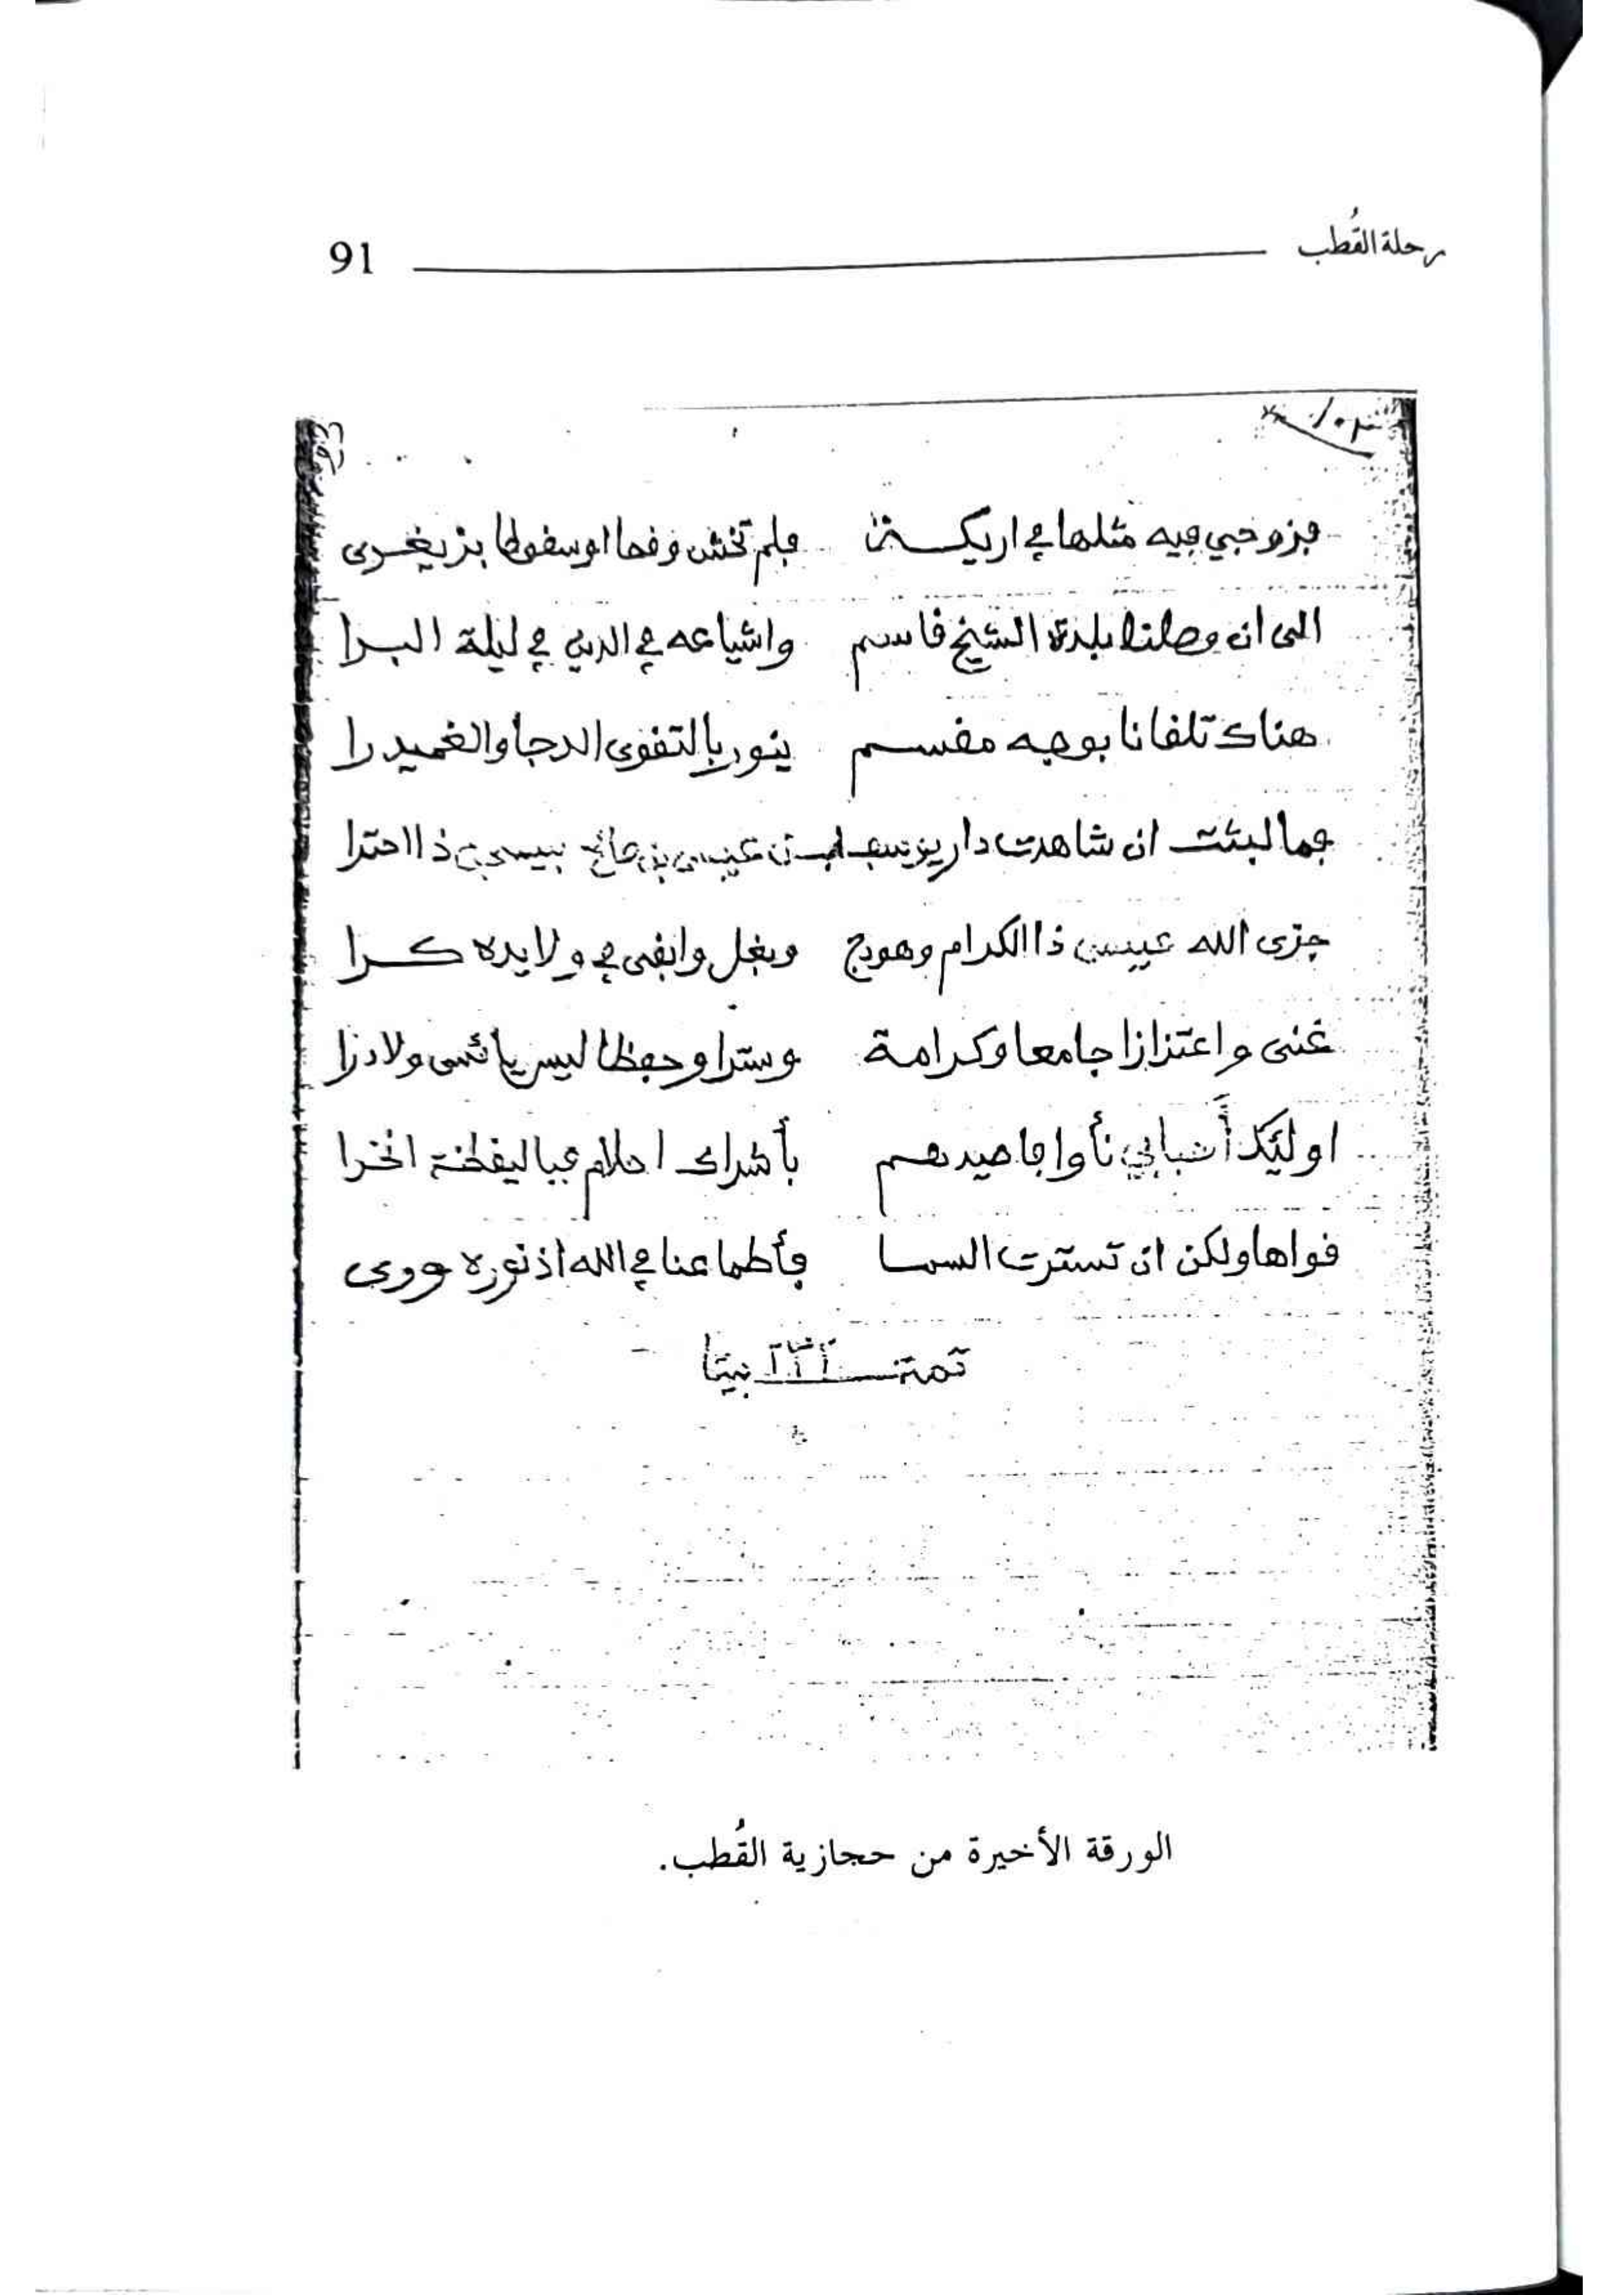 رحلة القُطب 91
فزوجي فيه مثلها في اريكة فلم تخش وقعا او سقوطا بن يغرى
الى ان وصلنا بلدة الشيخ قاسم واشياعه في الدين في ليلة البرا
هناك تلقانا بوجه مقسم ينور بالتقوى الدجا والغميدرا
فما لبثت ان شاهدت دار يوسف بن عيسى بن صالح ذا احترا
جزى الله عيسى ذا الكرام وهودج وبغل وابقى في ولايده كرا
غنى واعتزازا جامعا وكرامة وسترا وحفظا ليس يائسى ولا درا
اوليك أحبابي نأوا فاصيدهم بأشراك احلام فيا ليقظة اتخرا
فواها ولكن ان تسترت السما فأطماعنا في الله اذ نوره وورى
تمت بيتا
الورقة الأخيرة من حجازية القُطب.